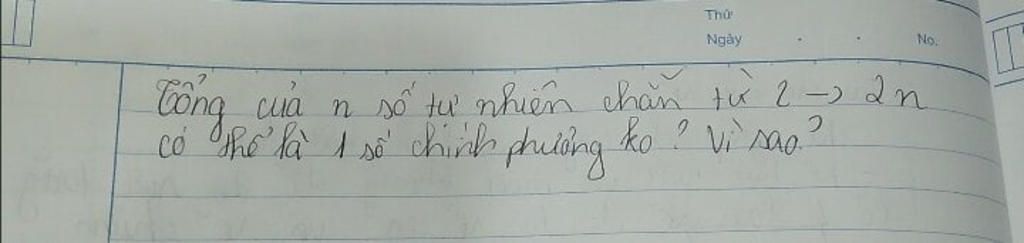 Thứ
Ngày . . No.
Tổng của n số tự nhiên chẵn từ 2 → 2n
có thể là 1 số chính phương ko? Vì sao?